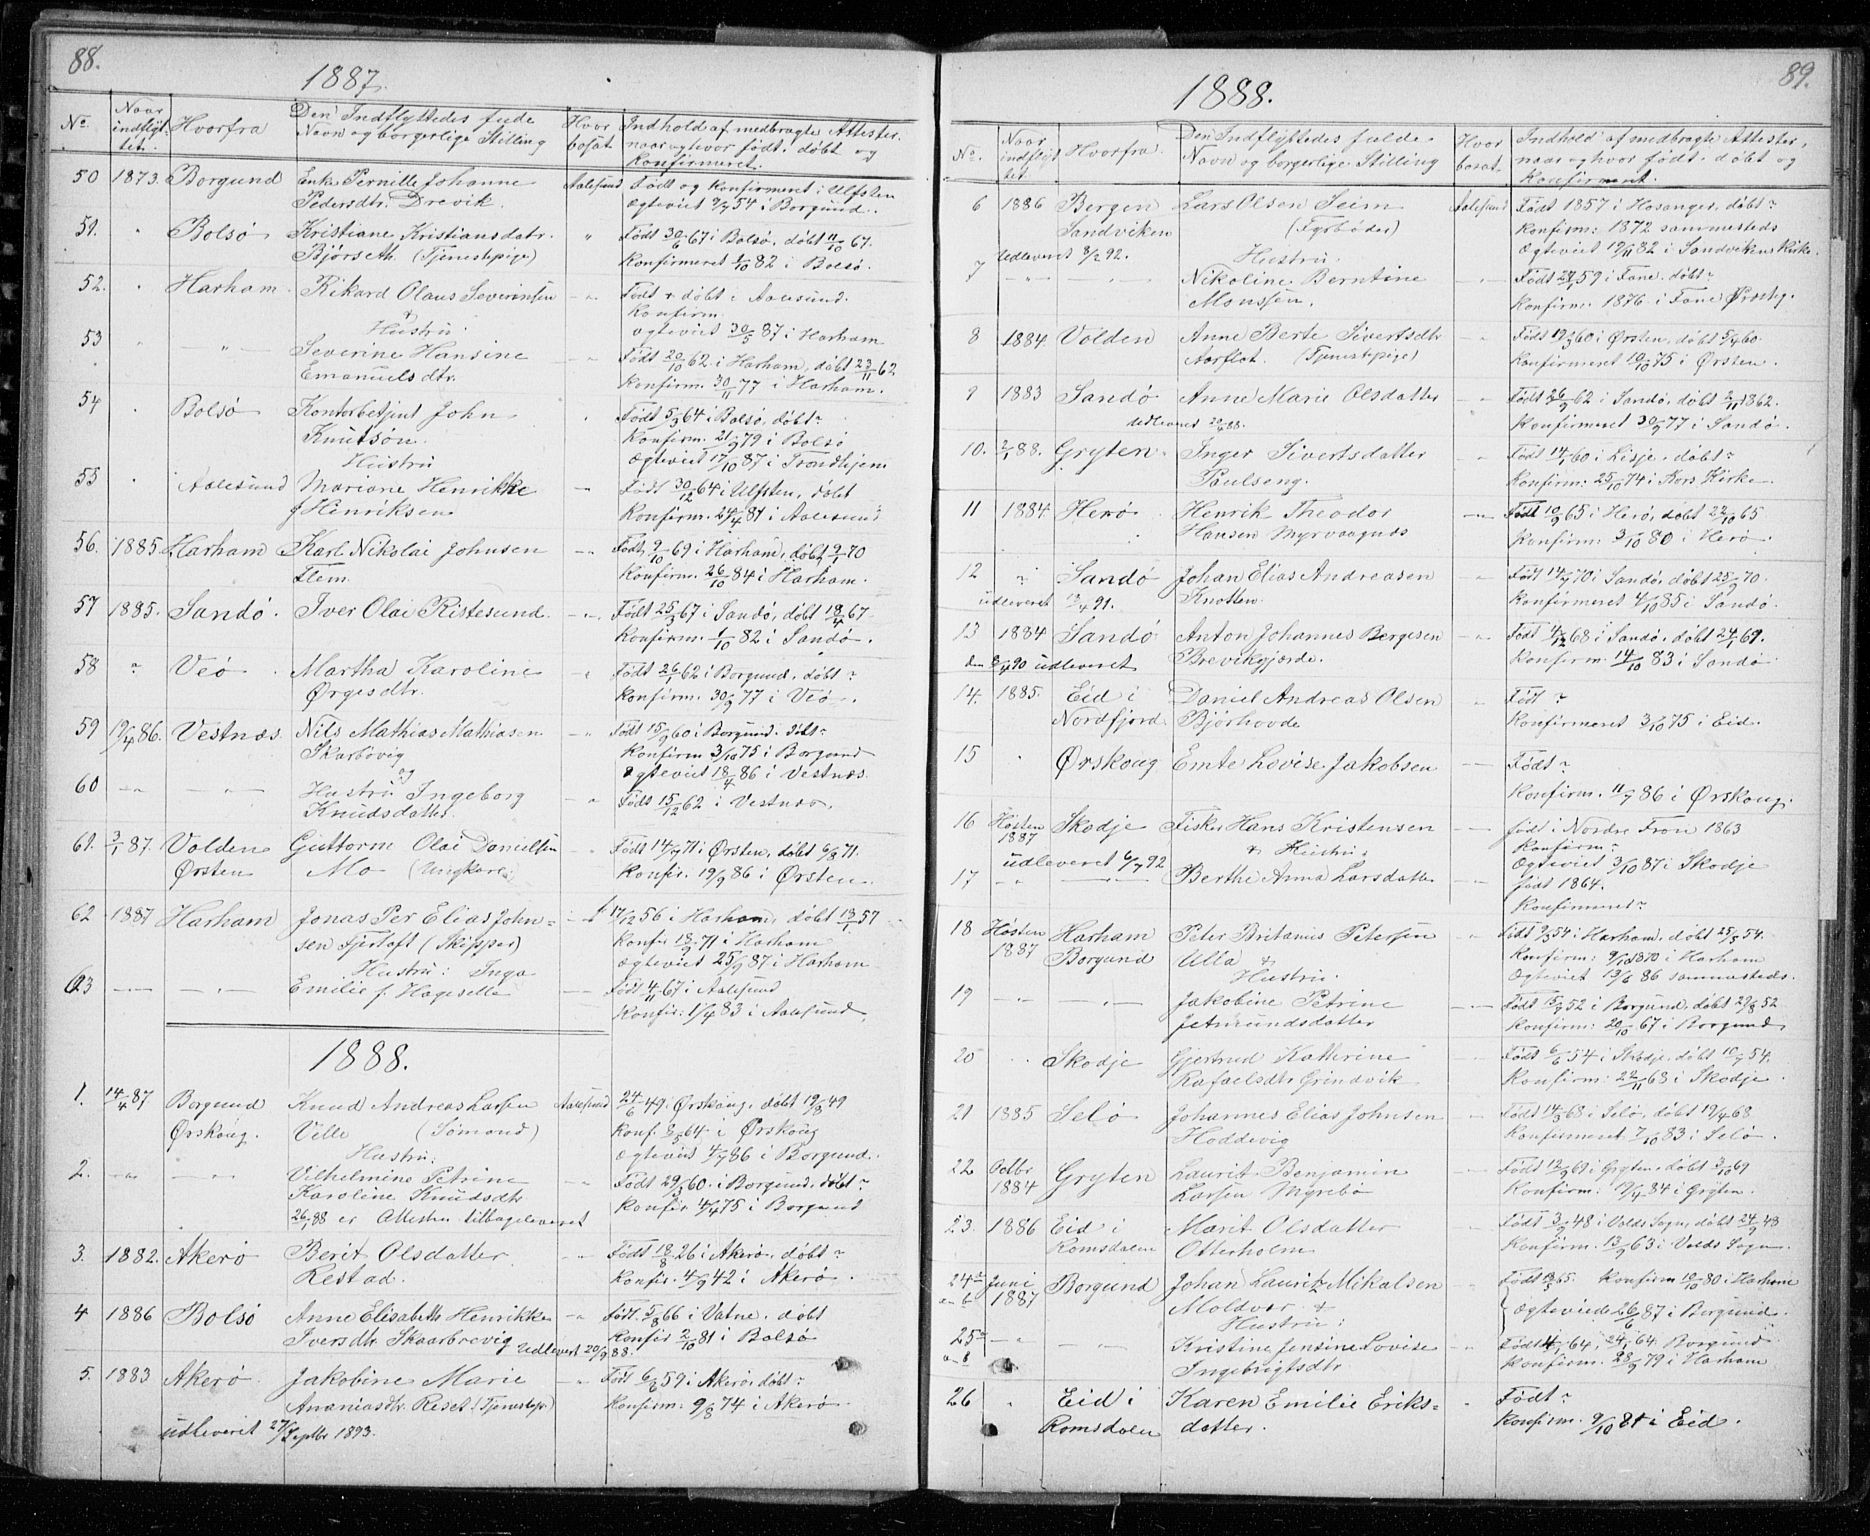 88.
1887.
No. Naar indflyttet. Hvorfra Den Indflyttedes fulde Navn og borgerlige Stilling Hvor bosat. Indhold af medbragte Attester, naar og hvor født, døbt og Konfirmeret.
50 1873. Borgund Enke Pernille Johanne Aalesund Født og Konfirmeret i Ulfsten
Pedersdtr. Drevik. Ægteviet 54 i Borgund.
51. " Bolsø Kristiane Kristiansdatr. " Født 30/6 67 i Bolsø, døbt 11/10 67.
Bjørseth (Tjenestepige) Konfirmeret 1/10 82 i Bolsø.
52. " Harham Rikard Olaus Severinsen " Født & døbt i Aalesund.
& Konfirm.
Hustru: Ægteviet 30/5 87 i Harham
53 " " Severine Hansine " Født 20/10 62 i Harham, døbt 23/11 62
Emanuelsdtr. Konfirm. 30/11 77 i Harham.
54 " Bolsø Kontorbetjent John " Født 5/3 64 i Bolsø, døbt "
Knutsøn. Konfirm. 21/9 79 i Bolsø
Hustru Ægteviet 17/10 87 i Trondhjem
55 " Aalesund Mariane Henrikke " Født 30/12 64 i Ulfsten, døbt
f Henriksen Konfirm. 24/4 81 i Aalesund
56. 1885. Harham Karl Nikolai Johnsen " Født 9/10 69 i Harham, døbt 9/1 70
Flem. Konfirm. 26/10 84 i Harham.
57 1885. Sandø. Iver Olai Ristesund. " Født 25/3 67 i Sandø, døbt 18/4 67
Konfirm. 1/10 82 i Sandø.
58 " Veø. Martha Karoline " Født 26/1 62 i Borgund, døbt "
Ørgesdtr. Konfirm. 30/9 77 i Veø.
59 19/4 86. Vestnæs. Nils Mathias Mathiasen " Født 15/9 60 i Borgund. døbt "
Skarbøvig Konfirm 3/10 75 i Borgund
og Ægteviet 18/4 86 i Vestnæs.
60 " " Hustru Ingeborg " Født 15/12 62 i Vestnæs.
Knudsdatter.
61. 3/1 87. Volden Guttorm Olai Danielsen " Født 14/7 71 i Ørsten, døbt 6/8 71.
Ørsten Mo (Ungkarl) Konfir. 19/9 86 i Ørsten.
62 1887 Harham Jonas Per Elias John= " f. 17/12 56 i Harham, døbt 13/1 57
sen Fjørtoft (Skipper) Konfir 18/9 71 i Harham
Hustru: Inga Ægteviet 25/9 87 i Harham
63 " " Emilie f. Hageselle " Født 4/11 67 i Aalesund
Konfir: 1/4 83 i Aalesund.
1888.
1. 14/4 87 Borgund Knud Andreas Larsen Aalesund 24/6 49. Ørskoug, døbt 19/8 49
Ørskoug. Velle (Sømand) Konf. 64 i Ørskoug
Hustru: Ægteviet 4/7 86 i Borgund.
2. " " Vilhelmine Petrine " Født 29/3 60. i Borgund, døbt "
Karoline Knudsdtr Konfir. 4/4 75 i Borgund
26/1 88 er Attesten tilbageleveret
3. 1882. Akerø Berit Olsdatter " Født 18/8 26 i Akerø, døbt "
Restad. Konfir. 4/9 42 i Akerø.
4 1886 Bolsø Anne Elisabeth Henrikke " Født. 5/8 66 i Vatne. døbt
Iversdtr Skaarbrevig Konfir 2/10 81 i Bolsø
Udlevert 20/9 88.
5. 1883 Akerø. Jakobine Marie " Født 6/6 59 i Akerø, døbt "
Ananiasdtr. Reset (Tjenestepi) Konfirm: 9/8 74 i Akerø.
udleveret 27/ Septbr 1893.
89.
1888.
No. Naar indflyttet. Hvorfra. Den Indflyttedes fulde Navn og borgerlige Stilling Hvor bosat. Indhold af medbragte Attester, naar og hvor født, døbt og Konfirmeret.
6 1886 Bergen Lars Olsen Seim Aalesund Født 1857 i Hosanger, døbt "
Sandviken (Fyrbøder) Konfirm: 1872 sammesteds
Udleveret 8/2 92. Hustru Ægteviet 19/11 82 i Sandvikens Kirke.
7 " " Nikoline Berntine " Født 59 i Fane, døbt "
Monssen. Konfirm: 1876 i Fane Præstg.
8 1884 Volden Anne Berte Sivertsdtr " Født 19/3 60 i Ørsten, døbt 60.
Aarflot. (Tjenestepige) Konfirmeret 10/10 75 i Ørsten.
9 1883 Sandø Anne Marie Olsdatter " Født 26/9 62 i Sandø, døbt 2/11 1862.
Udleveret 88. Konfirmeret 30/9 77 i Sandø.
10. 2/1 88. Gryten. Inger Sivertsdatter " Født 14/1 60 i Lesje, døbt "
Paulseng. Konfirm: 25/10 74 i Kors Kirke
11 1884 Herø. Henrik Theodor " Født 10/9 65 i Herø, døbt 22/10 65
Hansen Myrvaagnæs Konfirm: 3/10 80 i Herø.
12 " Sandø Johan Elias Andreasen " Født 14/7 70 i Sandø, døbt 25/9 70.
udleveret 13/4 91. Knotten. Konfirmeret 4/10 85 i Sandø.
13 1884 Sandø Anton Johannes Bergesen " Født 4/12 68 i Sandø, døbt 24/1 69.
den 8/4 90 udleveret Brevikgjærde. Konfirm. 14/10 83 i Sandø
14. 1885. Eid i Daniel Andreas Olsen " Født "
Nordfjord Bjørhovde Konfirmeret 3/10 75 i Eid.
15 " Ørskoug Emte Lovise Jakobsen " Født "
Konfirm. 11/7 86 i Ørskoug.
16 Høsten 1887 Skodje Fisker Hans Kristensen " født i Nordre Fron 1863
& Hustru: Konfirm: "
udleveret 6/7 92 Ægteviet 3/10 87 i Skodje
17 " " Berthe Anna Larsdatter " født 1864.
Konfirmeret "
18 Høsten 1887 Harham Peter Britanus Petersen " Født 9/3 54 i Harham, døbt 25/3 54.
Borgund Ulla & Konfirm: 9/10 1870 i Harham
Hustru. Ægteviet 13/6 86 sammesteds.
19 " " Jakobine Petrine " Født 15/7 52 i Borgund, døbt 29/8 52
Jetmundsdatter Konfirm: 20/10 67 i Borgund
20 " Skodje Gjertrud Kathrine " Født 6/6 54 i Skodje, døbt 10/7 54.
Rafaelsdtr Grindvik Konfirm: 22/11 68 i Skodje.
21 1885 Selø Johannes Elias Johnsen " Født 14/3 68 i Selø, døbt 19/4 68
Hoddevig Konfirmeret 7/10 83 i Selø.
22 Octbr 1884 Gryten Laurits Benjamin " Født 12/9 69 i Gryten, døbt 3/10 69
Larsen Myrebø Konfirm: 19/4 84 i Gryten.
23. 1886 Eid i Marit Olsdatter " Født 3/9 48 i Volds Sogn, døbt 24/9 48
Romsdalen Otterholm Konfirm: 13/9 63 i Volds Sogn.
24 Juni 1887 Borgund Johan Lauritz Mikalsen " Født 65. Konfirm 10/10 80 i Harham
Moldvær & Ægteviede 26/6 87 i Borgund.
Hustru:
25 " " Kristine Jensine Lovise " Født 4/1 64, 24/1 64. Borgund
Ingebrigtsdtr Konfirm. 28/9 79 i Harham
26 " Eid i Karen Emilie Eriks= " Født "
Romsdalen datter. Konfirm. 9/10 81 i Eid.